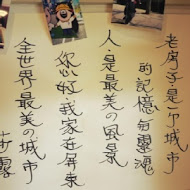 老房子是ㄕ城市
的記憶與靈魂
人‧是最美の風景
您好我家在屏東
全世界最美の城市